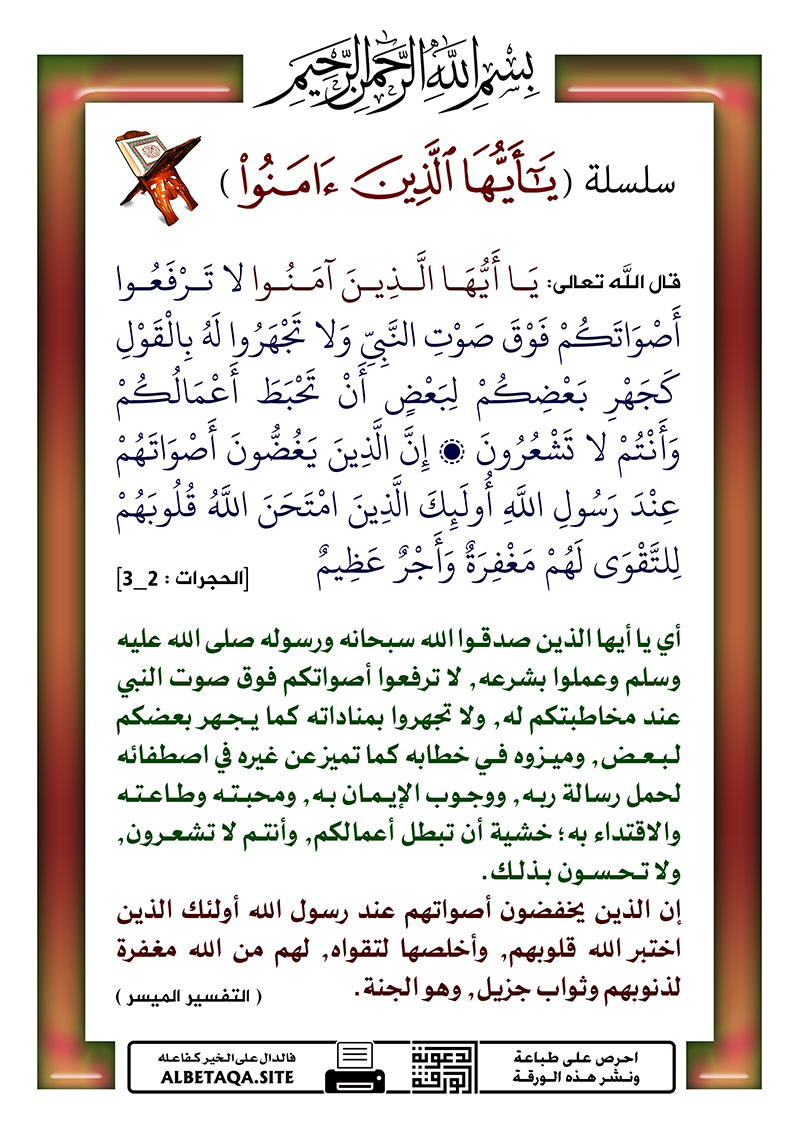 بِسْمِ اللَّهِ الرَّحْمَنِ الرَّحِيمِ
سلسلة ( يَـٰٓأَيُّهَا ٱلَّذِينَ ءَامَنُوا۟ )
قال اللَّه تعالى: يَا أَيُّهَا الَّذِينَ آمَنُوا لا تَرْفَعُوا
أَصْوَاتَكُمْ فَوْقَ صَوْتِ النَّبِيِّ وَلا تَجْهَرُوا لَهُ بِالْقَوْلِ
كَجَهْرِ بَعْضِكُمْ لِبَعْضٍ أَنْ تَحْبَطَ أَعْمَالُكُمْ
وَأَنْتُمْ لا تَشْعُرُونَ ۞ إِنَّ الَّذِينَ يَغُضُّونَ أَصْوَاتَهُمْ
عِنْدَ رَسُولِ اللَّهِ أُولَئِكَ الَّذِينَ امْتَحَنَ اللَّهُ قُلُوبَهُمْ
لِلتَّقْوَى لَهُمْ مَغْفِرَةٌ وَأَجْرٌ عَظِيمٌ [الحجرات : 2_3]
أي يا أيها الذين صدقوا الله سبحانه ورسوله صلى الله عليه
وسلم وعملوا بشرعه, لا ترفعوا أصواتكم فوق صوت النبي
عند مخاطبتكم له, ولا تجهروا بمناداته كما يجهر بعضكم
لبعض, وميزوه في خطابه كما تميز عن غيره في اصطفائه
لحمل رسالة ربه, ووجوب الإيمان به, ومحبته وطاعته
والاقتداء به؛ خشية أن تبطل أعمالكم, وأنتم لا تشعرون,
ولا تحسون بذلك.
إن الذين يخفضون أصواتهم عند رسول الله أولئك الذين
اختبر الله قلوبهم, وأخلصها لتقواه, لهم من الله مغفرة
لذنوبهم وثواب جزيل, وهو الجنة. ( التفسير الميسر )
احرص على طباعة
ونشر هذه الورقة
الورقة
الدعوية
فالدال على الخير كفاعله
ALBETAQA.SITE